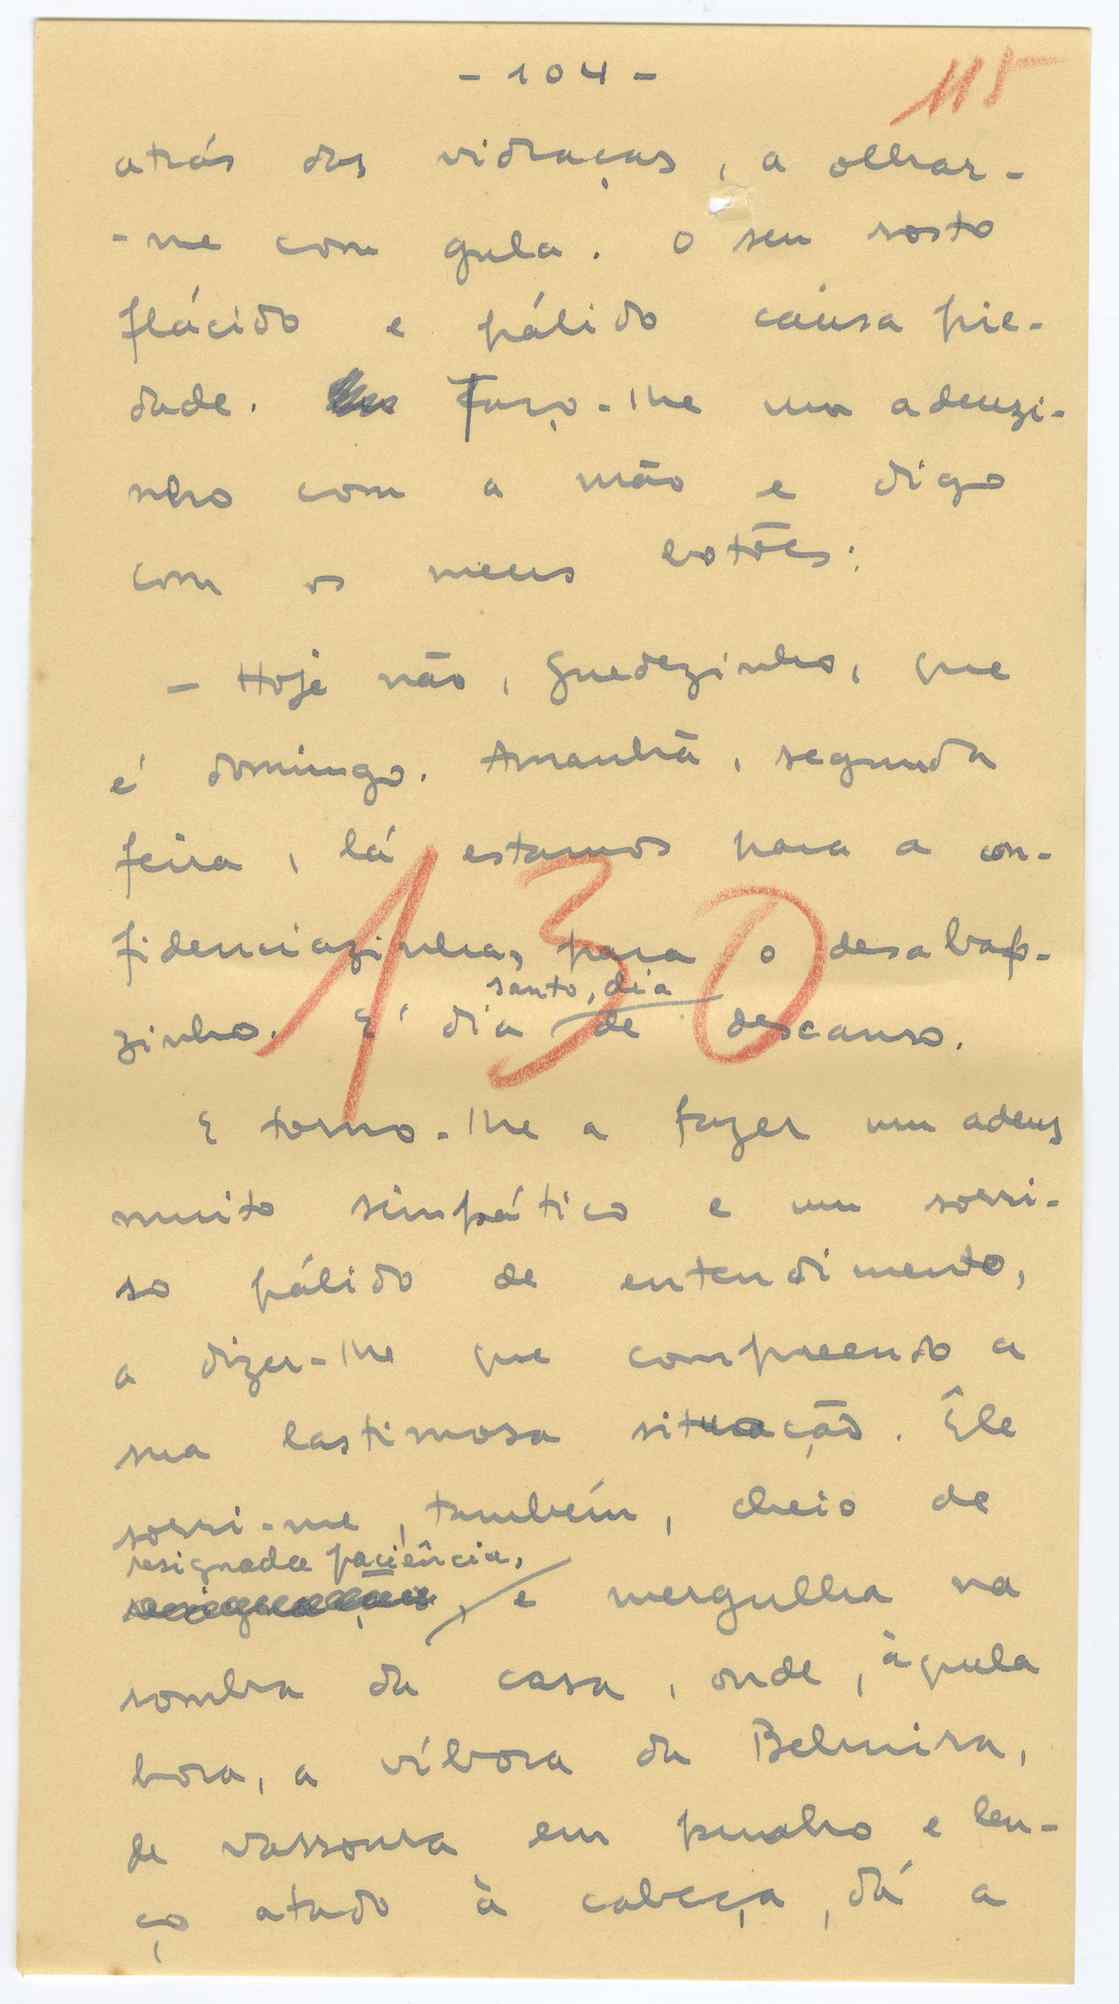 - 104 -
115
atrás das vidraças, a olhar-
-me com gula. O seu rosto
flácido e pálido causa pie-
dade. Faço-lhe um adeuzi-
nho com a mão e digo
com os meus botões:
— Hoje não, Guedezinho, que
é domingo. Amanhã, segunda
feira, lá estamos para a con-
fidenciazinha, para o desabaf-
zinho. É dia santo, dia de descanso.
130
E torno-lhe a fazer um adeus
muito simpático e um sorri-
so pálido de entendimento,
a dizer-lhe que compreendo a
sua lastimosa situação. Êle
sorri-me, também, cheio de
resignada paciência,
e mergulha na
sombra da casa, onde, àquela
hora, a víbora da Belmira,
de vassoura em punho e len-
ço atado à cabeça, dá a